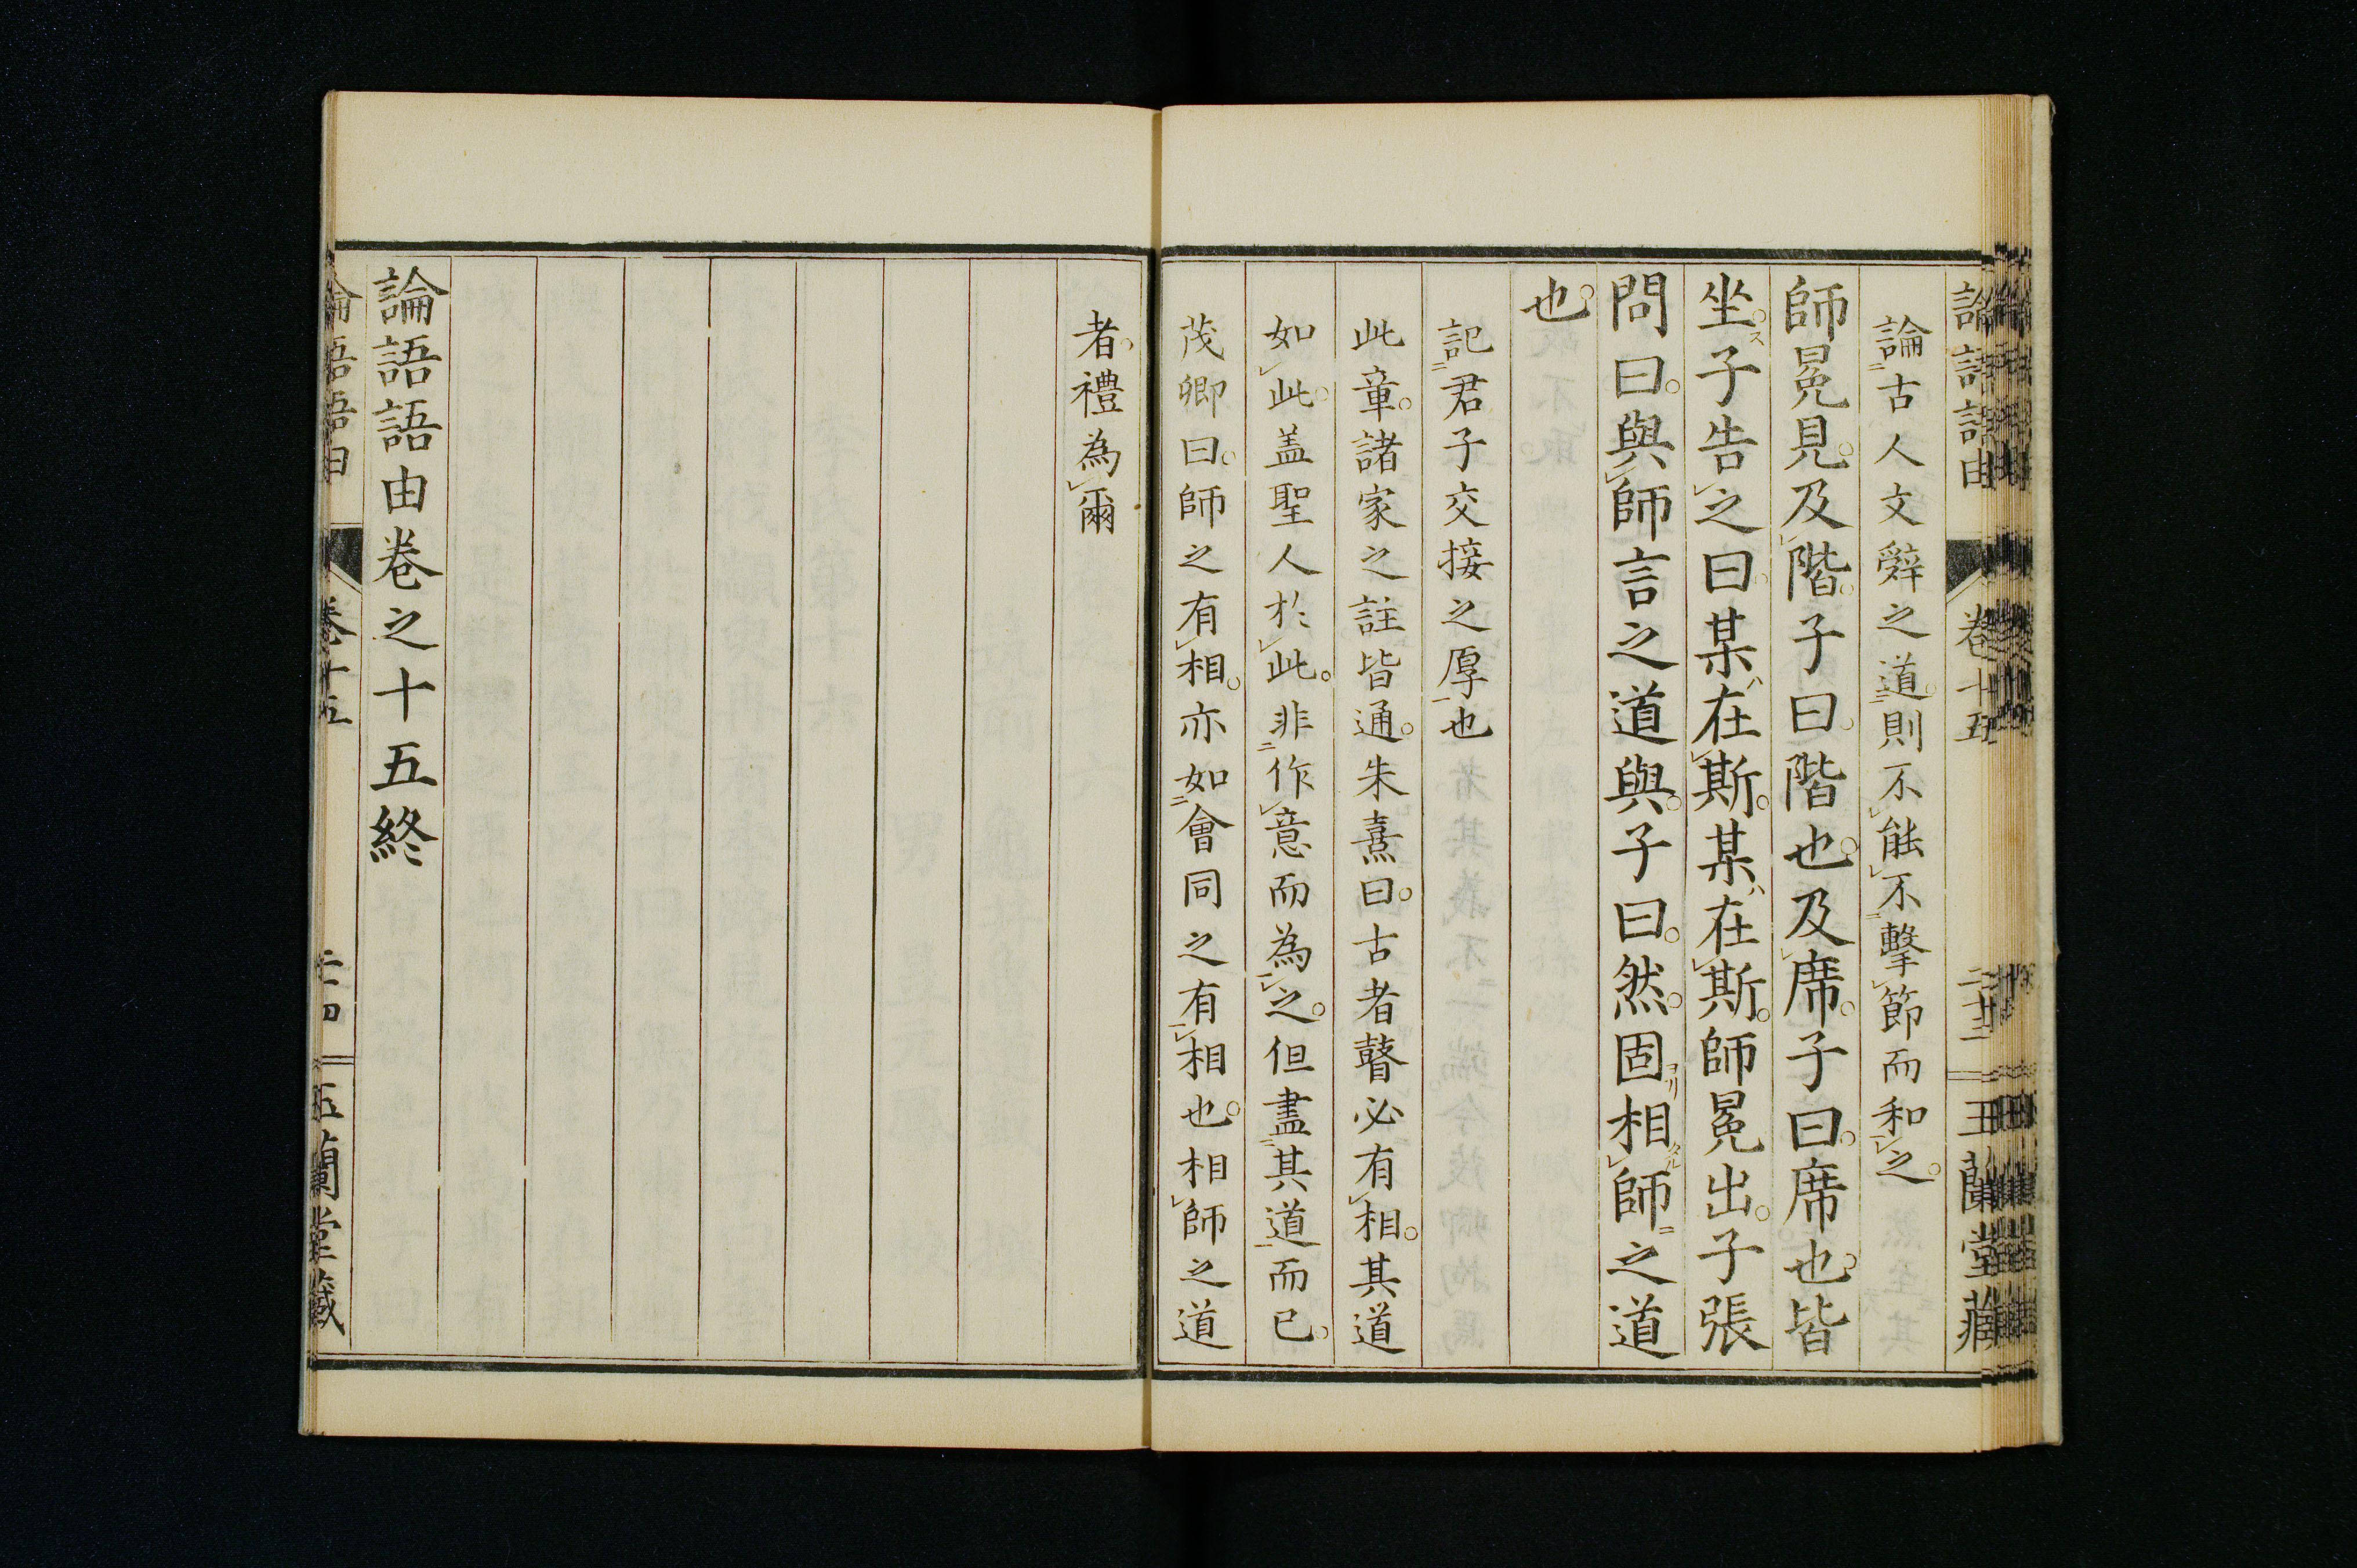 論語語由 卷十五 二十三 玉蘭堂藏
論古人文辤之道。則不能不擊節而和之。
師冕見。及階。子曰。階也。及席。子曰。席也。皆
坐。子告之曰。某在斯。某在斯。師冕出。子張
問曰。與師言之道與。子曰。然。固相師之道
也。
記君子交接之厚也
此章。諸家之註皆通。朱熹曰。古者瞽必有相。其道
如此。盖聖人於此。非作意而為之。但盡其道而已。
茂卿曰。師之有相。亦如會同之有相也。相師之道
者。禮為爾
論語語由卷之十五終
論語語由 卷十五 二十四 玉蘭堂藏